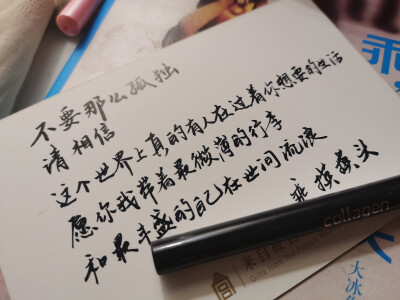 不要那么孤独
请相信
这个世界上真的有人在过着你想要的生活
愿你我带着最微薄的行李
和最丰盛的自己在世间流浪
摸摸头
collagen
来自故宫
大冰